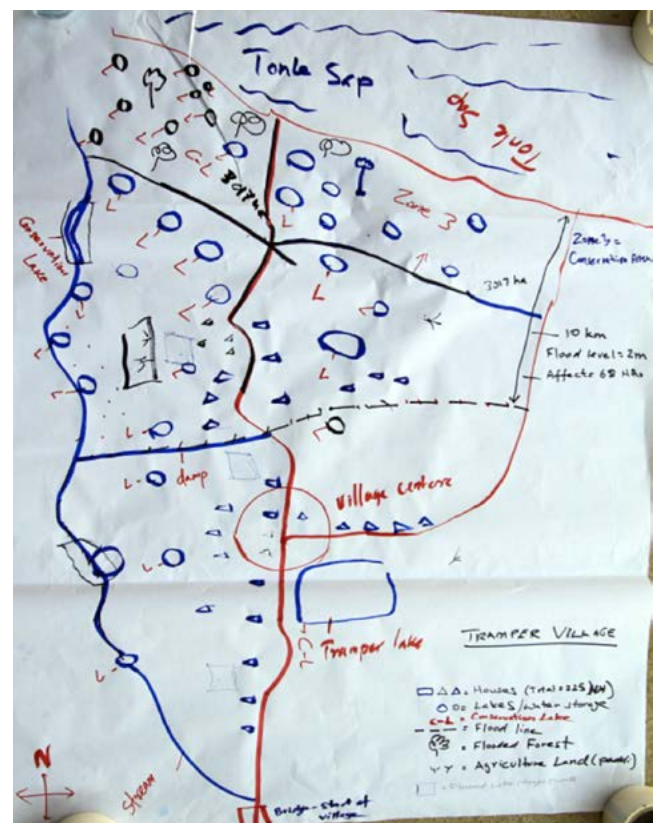 Tonle Sap
Tonle Sap
C-L
3017ha
Zone 3
Zone 3 =
Conservation Area
Conservation
Lake
3017 ha
10 km
Flood level = 2m
Affects 68 HHs
L
L
L
damp
L-
Village centere
C-L
Tramper lake
L
TRAMPER VILLAGE
= Houses (Total = 225 HH)
= Lakes/water storage
C-L = Conservation Lake
= Flood line
= Flooded Forest
= Agriculture Land
N
Stream
Bridge - start of
village